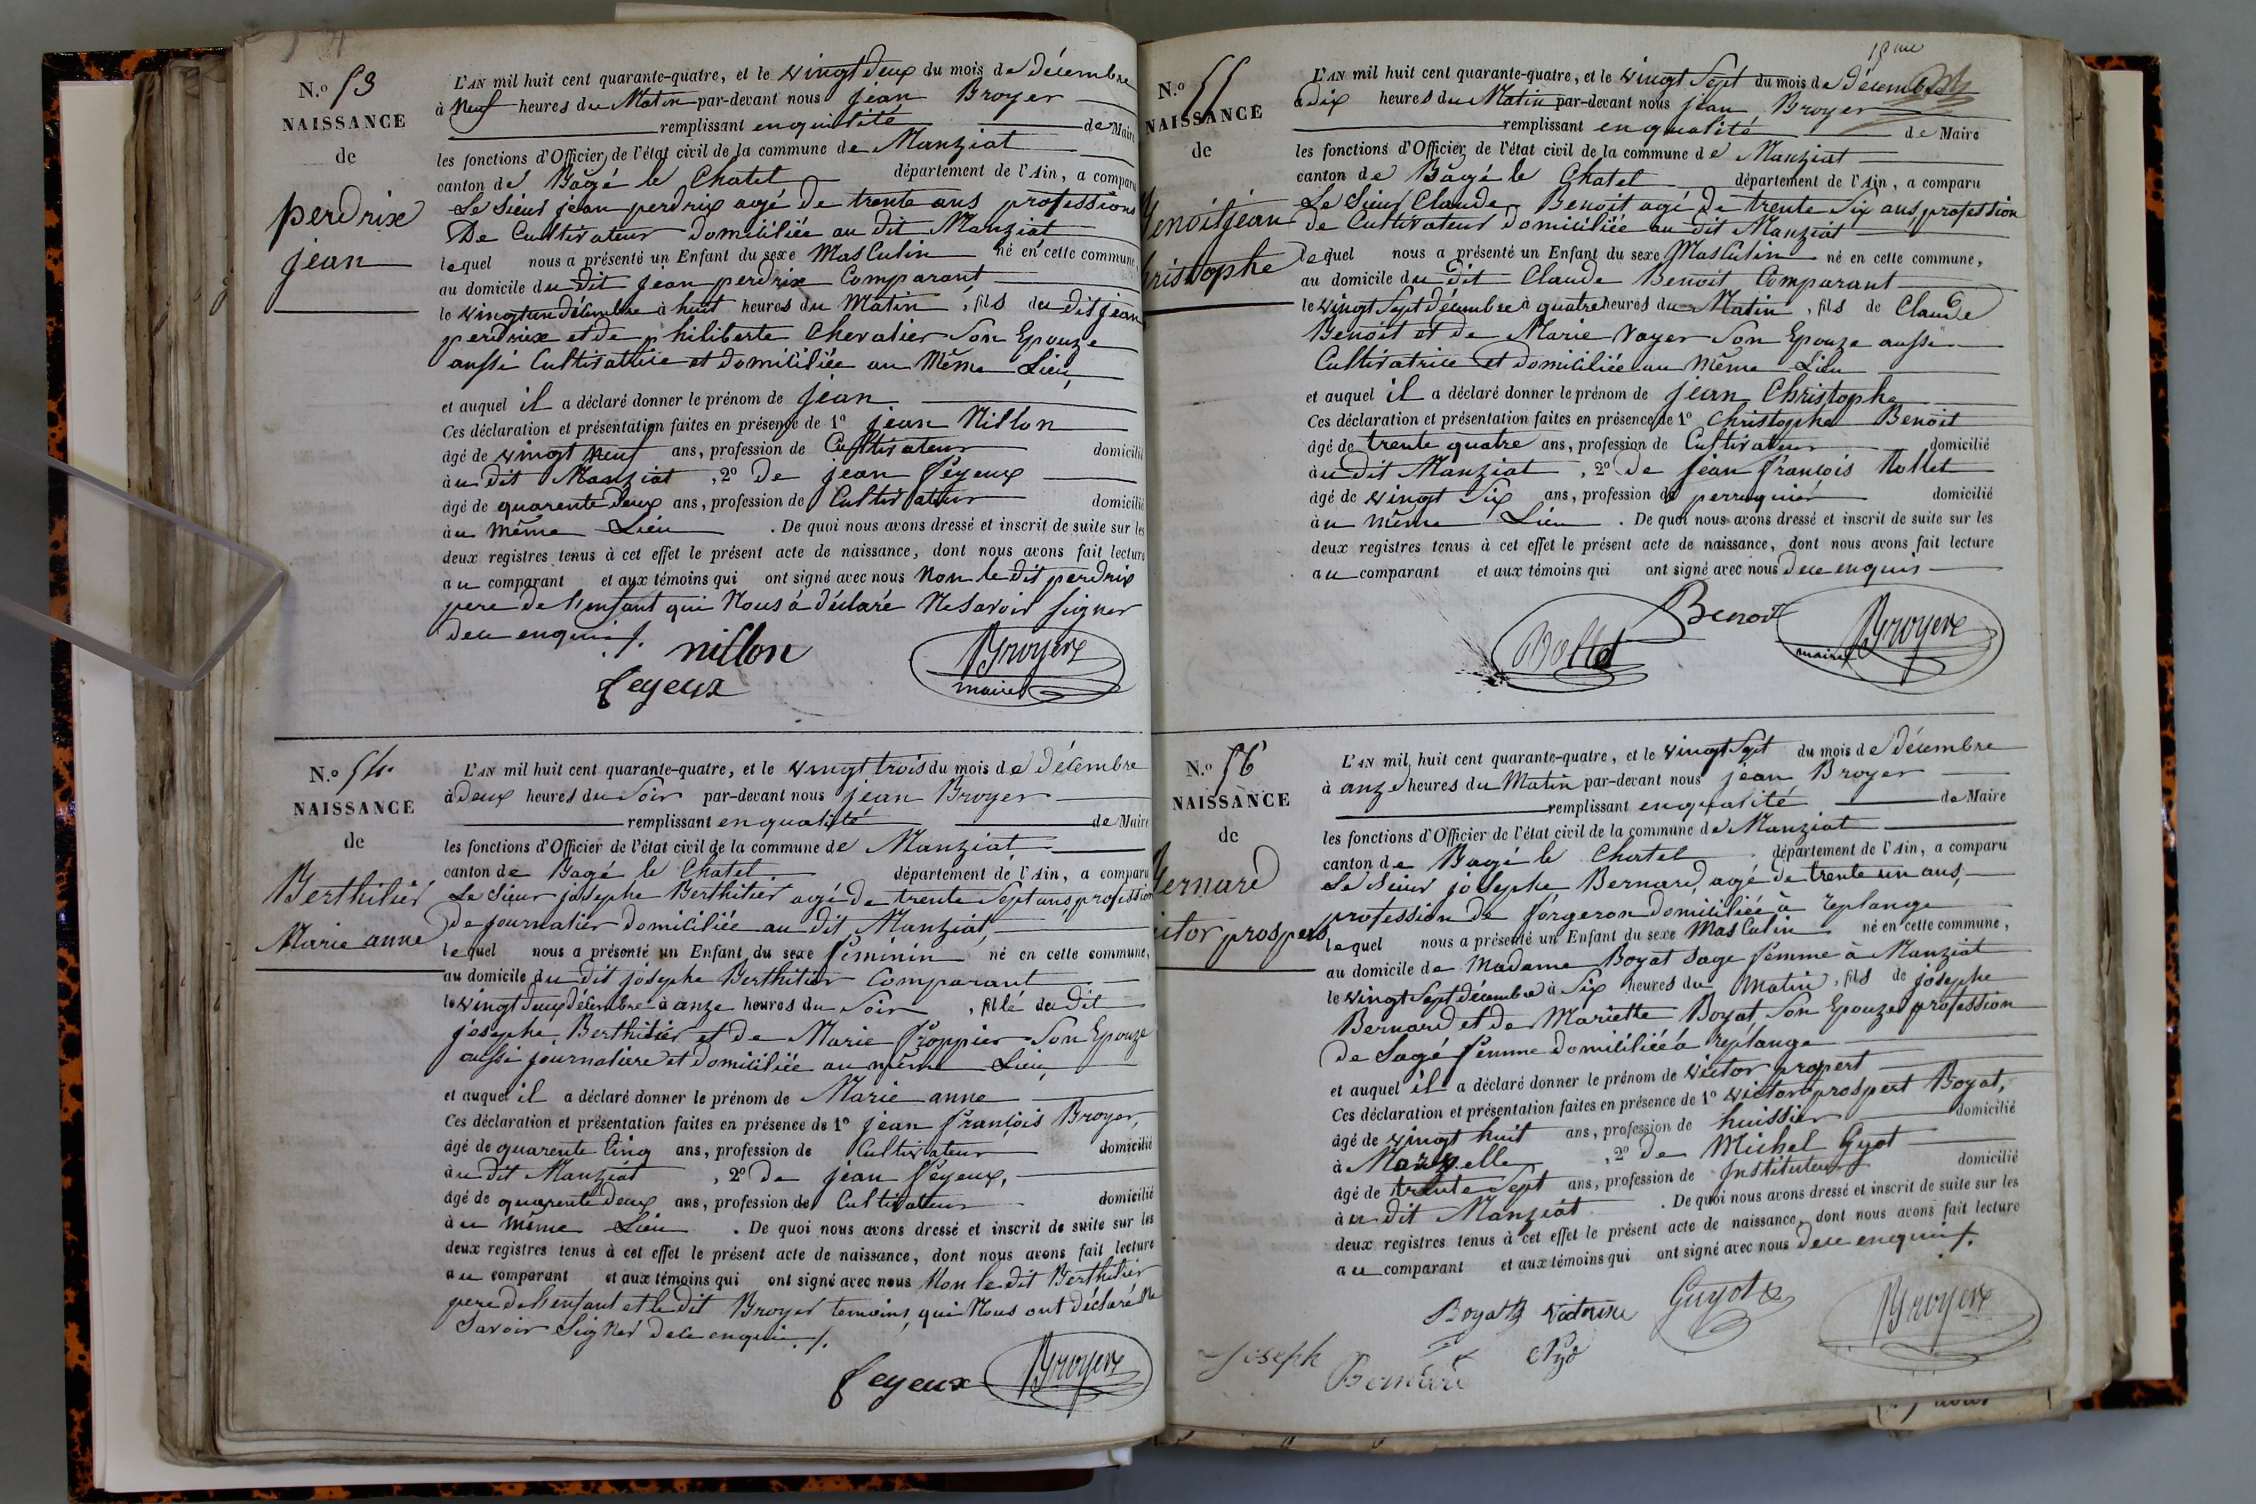 N.o 53
NAISSANCE
de
perdrix
jean
L'AN mil huit cent quarante-quatre, et le vingt deux du mois de décembre
à neuf heures du Matin par-devant nous jean Broyer
remplissant en qualité de Maire
les fonctions d'Officier de l'état civil de la commune de Manziat
canton de Bâgé le Chatel département de l'Ain, a comparu
Le Sieur jean perdrix agé de trente ans profession
De Cultivateur domiciliée au dit Manziat
lequel nous a présenté un Enfant du sexe Masculin né en cette commune,
au domicile du dit jean perdrix Comparant
le vingt un décembre à huit heures du Matin, fils du dit jean
perdrix et de philiberte Chevalier Son Epouze
aussi Cultivatrice et domiciliée au Même Lieu,
et auquel il a déclaré donner le prénom de jean
Ces déclaration et présentation faites en présence de 1o jean Nillon
âgé de vingt neuf ans, profession de Cultivateur domicilié
à u dit Manziat, 2o De jean féyeux
âgé de quarente deux ans, profession de Cultivateur domicilié
à u même Lieu. De quoi nous avons dressé et inscrit de suite sur les
deux registres tenus à cet effet le présent acte de naissance, dont nous avons fait lecture
au comparant et aux témoins qui ont signé avec nous Non le dit perdrix
pere de l'enfant qui Nous à déclaré Ne Savoir Signer
dece enquis ./.
nillon
feyeux
Broyer
maire
N.o 54
NAISSANCE
de
Berthilier
Marie anne
L'AN mil huit cent quarante-quatre, et le vingt trois du mois de décembre
à deux heures du Soir par-devant nous jean Broyer
remplissant en qualité de Maire
les fonctions d'Officier de l'état civil de la commune de Manziat
canton de Bagé le Chatel département de l'Ain, a comparu
Le Sieur josephe Berthilier agé de trente Sept ans, profession
de journalier domiciliée au dit Manziat,
lequel nous a présenté un Enfant du sexe féminin né en cette commune,
au domicile du dit josephe Berthilier Comparant
le vingt deux décembre à anze heures du Soir, fille du dit
josephe Berthilier et de Marie froppier Son Epouze
aussi journaliere et domiciliée au même Lieu,
et auquel il a déclaré donner le prénom de Marie anne
Ces déclaration et présentation faites en présence de 1o jean françois Broyer,
âgé de quarente Cinq ans, profession de Cultivateur domicilié
à u dit Manziat, 2o De jean féyeux,
âgé de quarente deux ans, profession de Cultivateur domicilié
à u même Lieu. De quoi nous avons dressé et inscrit de suite sur les
deux registres tenus à cet effet le présent acte de naissance, dont nous avons fait lecture
au comparant et aux témoins qui ont signé avec nous Non le dit Berthilier
pere de l'enfant et le dit Broyer temoins, qui Nous ont déclaré Ne
Savoir Signer dece enquis ./.
feyeux
Broyer
N.o 55
NAISSANCE
de
Benoit jean
Christophe
L'AN mil huit cent quarante-quatre, et le vingt Sept du mois de Décembre
à dix heures du Matin par-devant nous jean Broyer
remplissant en qualité de Maire
les fonctions d'Officier de l'état civil de la commune de Manziat
canton de Bâgé le Chatel département de l'Ain, a comparu
Le Sieur Claude Benoit agé de trente Six ans, profession
de Cultivateur domiciliée au dit Manziat
lequel nous a présenté un Enfant du sexe Masculin né en cette commune,
au domicile du dit Claude Benoit Comparant
le vingt Sept décembre à quatre heures du Matin, fils de Claude
Benoit et de Marie Voyer Son Epouze aussi
Cultivatrice et domiciliée au même Lieu
et auquel il a déclaré donner le prénom de jean Christophe
Ces déclaration et présentation faites en présence de 1o Christophe Benoit
âgé de trente quatre ans, profession de Cultivateur domicilié
à u dit Manziat, 2o De jean françois Nollet
âgé de vingt Six ans, profession de perruquier domicilié
à u même Lieu. De quoi nous avons dressé et inscrit de suite sur les
deux registres tenus à cet effet le présent acte de naissance, dont nous avons fait lecture
au comparant et aux témoins qui ont signé avec nous dece enquis
Benoit
Broyer
maire
N.o 56
NAISSANCE
de
Bernard
victor prospert
L'AN mil huit cent quarante-quatre, et le vingt Sept du mois de décembre
à anze heures du Matin par-devant nous jean Broyer
remplissant en qualité de Maire
les fonctions d'Officier de l'état civil de la commune de Manziat
canton de Bagé le Chatel département de l'Ain, a comparu
Le Sieur josephe Bernard, agé de trente un ans,
profession de forgeron domiciliée à replange
lequel nous a présenté un Enfant du sexe Masculin né en cette commune,
au domicile de Madame Boyat Sage femme à Manziat
le vingt Sept décembre à Six heures du Matin, fils de josephe
Bernard et de Mariette Boyat Son Epouze profession
de Sage femme domiciliée à replange
et auquel il a déclaré donner le prénom de victor propert
Ces déclaration et présentation faites en présence de 1o victor prospert Boyat,
âgé de vingt huit ans, profession de huissier domicilié
à, 2o De Michel Gyot
âgé de trente Sept ans, profession de Instituteur domicilié
à u dit Manziat. De quoi nous avons dressé et inscrit de suite sur les
deux registres tenus à cet effet le présent acte de naissance, dont nous avons fait lecture
au comparant et aux témoins qui ont signé avec nous dece enquis ./.
Guyot
Broyer
Joseph
Bernard